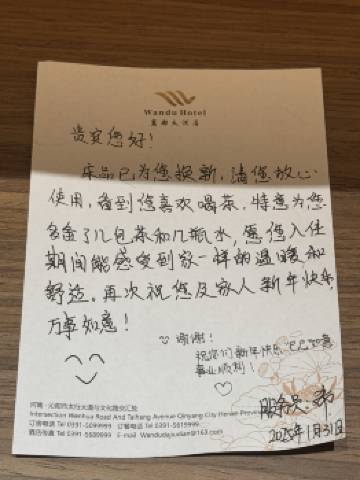 Wandu Hotel
万都大酒店
贵宾您好!
床品已为您换新,请您放心
使用,看到您喜欢喝茶,特意为您
多备了几包茶和几瓶水,愿您入住
期间能感受到家一样的温暖和
舒适,再次祝您及家人新年快乐,
万事如意!
谢谢!
祝你们新年快乐
事业顺利!
服务员:
2025年1月31日
河南·沁阳市太行大道与文化路交汇处
Intersection Wenhua Road And Taihang Avenue Qinyang City Henan Province
订房电话 Tel 0391-5699999 订餐电话 Tel 0391-5619999
酒店传真 Tel 0391-5689999 E-mail Wandudajiudian@163.com